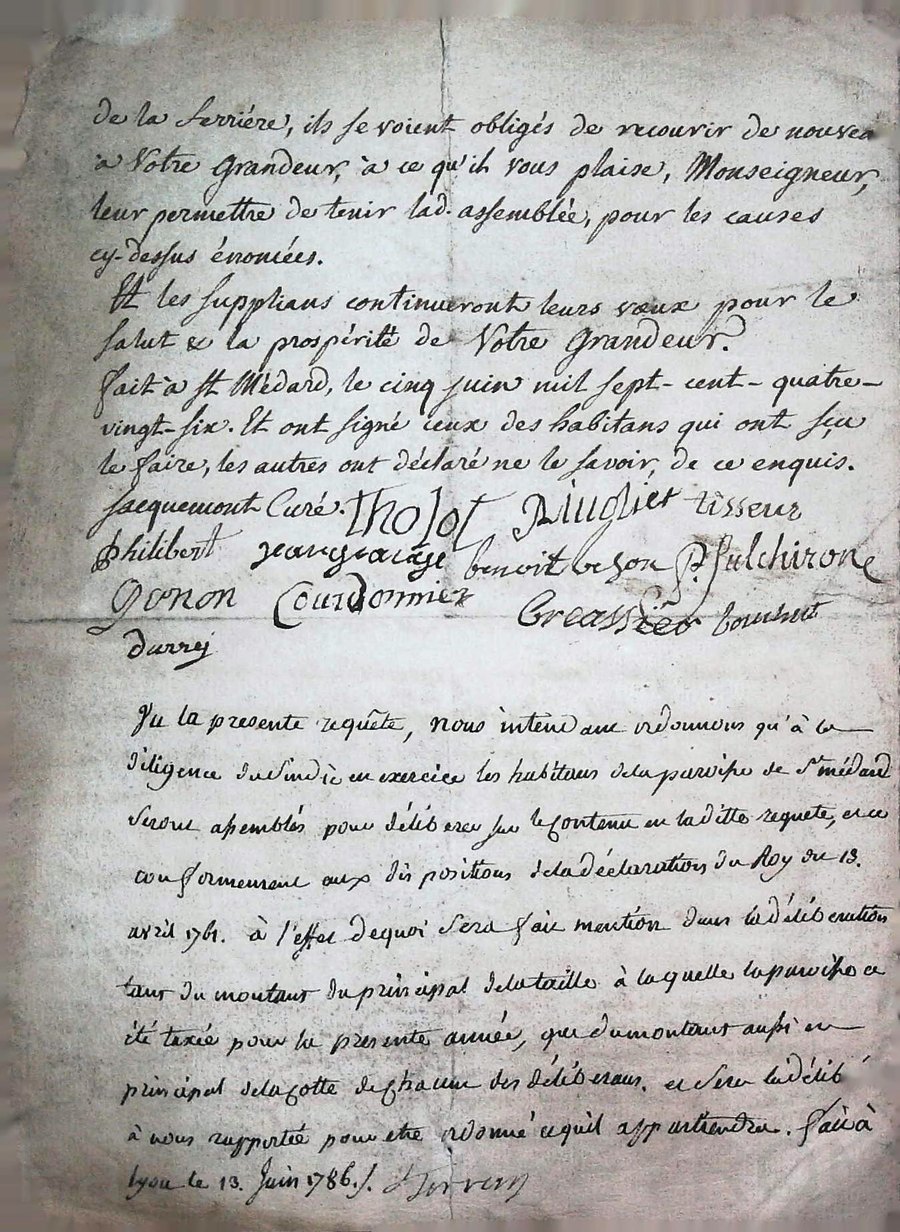 de la Ferriére, ils se voient obligés de recourir de nouvea
à Votre Grandeur, à ce qu'il vous plaise, Monseigneur,
leur permettre de tenir lad. assemblée, pour les causes
cy-dessus énoncées.
Et les supplians continueront leurs vœux pour le
salut & la prospérité de Votre Grandeur.
fait à St Médard, le cinq juin mil sept-cent-quatre-
vingt-six. Et ont signé ceux des habitans qui ont sçu
le faire, les autres ont déclaré ne le savoir, de ce enquis.
Jacquemont Curé. Tholot tisseur
Philibert benoit P. fulchirone
Gonon Courdonnier
durrej
Vu la presente requête, nous intendant ordonnons qu'à la
diligence du Sindic en exercice les habitans dela paroisse de St médard
seront assemblés pour délibérer sur le contenu en laditte requete, et ce
conformement aux dispositions dela déclaration du Roy du 13.
avril 1761. à l'effet dequoi sera fait mention dans la délibération
tant du montant du principal dela taille à laquelle la paroisse a
été taxée pour la presente année, que du montant aussi en
principal dela cotte de chacun des délibérans. et sera la délib
à nous rapportée pour etre ordonné ce qu'il appartiendra. fait à
Lyon le 13. Juin 1786./. Terray